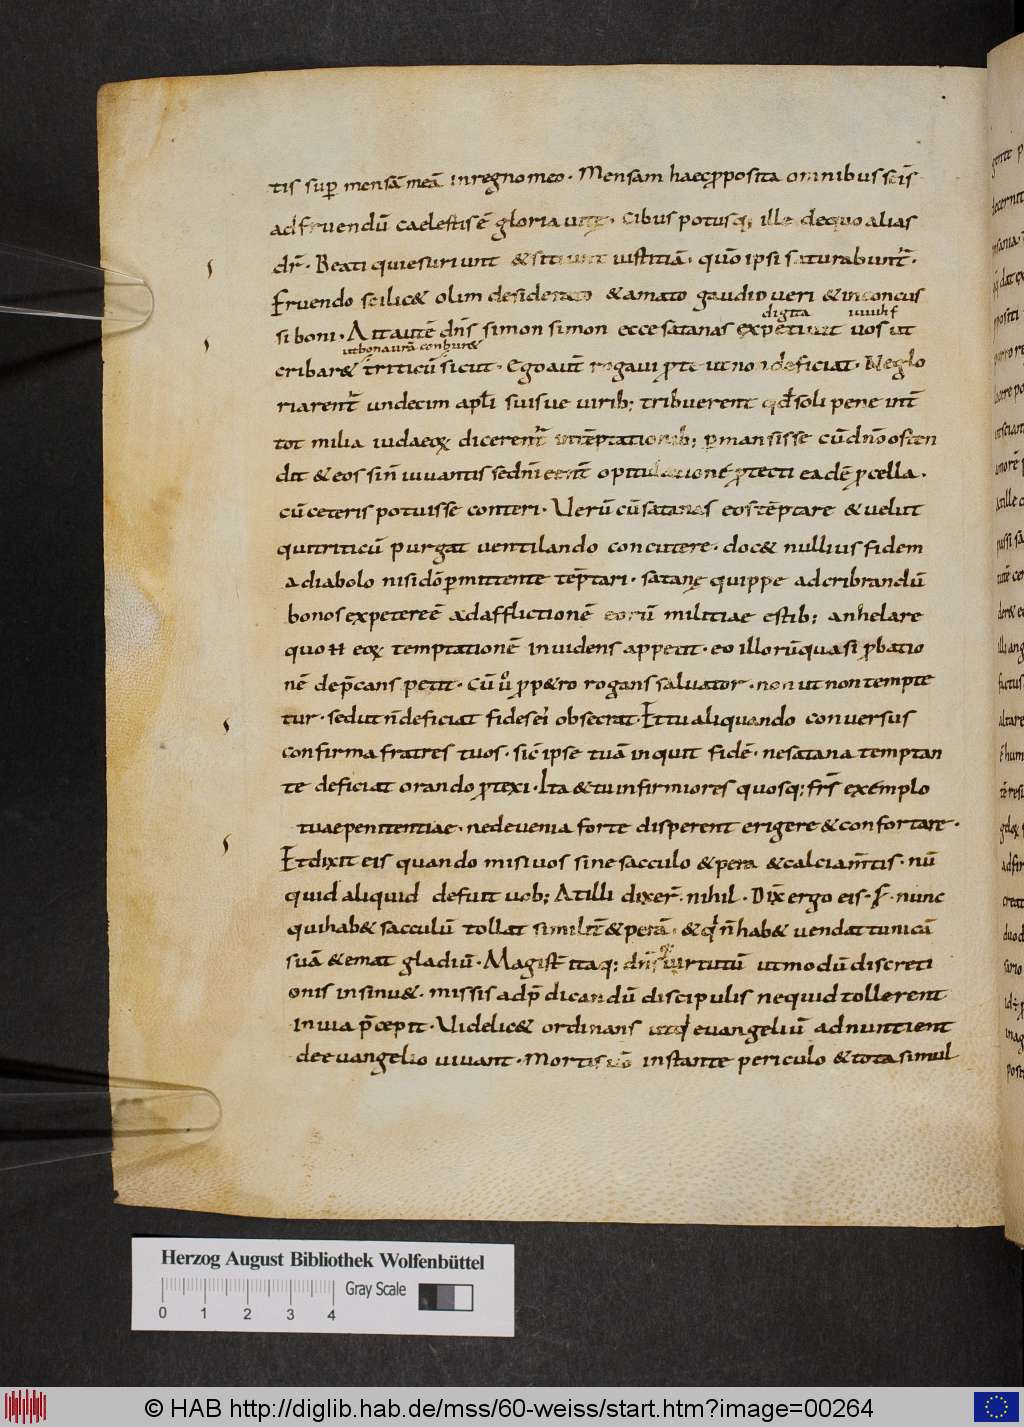 tis sup̄ mensā meā in regno meo · Mensam haec p̄posita omnibus sc̄is
ad fruendū caelestis ē gloria uitę · Cibus potusq; ille de quo alias
dr̄ · Beati qui esuriunt & sitiunt iustitiā · quō ipsi saturabunt̄ ·
Fruendo scilic& olim desiderato & amato gaudio ueri & inconcus
digita
si boni · Ait autē dn̄s simon simon ecce satanas expetiuit uos ut
cribar& triticū sicut · Ego aut̄ rogaui pro te ut non deficiat · Ne glo
riarent̄ undecim apl̄i suisue uirib; tribuerent qd̄ soli pene int̄
tot milia iudaeoꝝ dicerent̄ in tēptationib; p̄mansisse cū dn̄o osten
dit & eos si n̄ iuuantis se dn̄i eent̄ opitulatione p̄tecti eadē p̄cella ·
cū ceteris potuisse conteri · Uerū cū satanas eos tēptare & uelut
qui triticū purgat uentilando concutere · doc& nullius fidem
a diabolo nisi dō p̄mittente tēptari · satanę quippe ad cribrandū
bonos expetere ē ad afflictionē eorū militiae estib; anhelare
quo n̄ eoꝝ temptationē inuidens appetit · eo illorū quasi p̄batio
nē dep̄cans petit · Cū u̇ p̄ p&ro rogans saluator · non ut non tempte
tur · sed ut n̄ deficiat fides ei obsecrat · Et tu aliquando conuersus
confirma fratres tuos · sic̄ ipse tuā inquit fidē · ne satana temptan
te deficiat orando p̄texi · Ita & tu infirmiores quosq; fr̄s exemplo
tuae penitentiae · ne de uenia forte disperent erigere & confortare ·
Et dixit eis quando misi uos sine sacculo & pera & calciam̄tis · nū
quid aliquid defuit uob; At illi dixer̄ · nihil · Dix̄ ergo eis · S; nunc
qui hab& sacculū tollat similit̄ & perā · & q̇ n̄ hab& uendat tunicā
suā & emat gladiū · Magist̄ itaq; dn̄s uirtutū ut modū discreti
onis insinu& · missis ad p̄dicandū discipulis ne quid tollerent
in uia p̄cepit · Uidelic& ordinans ut q evangeliū adnuntient
de evangelio uiuant · Mortis uō instante periculo & tota simul
Herzog August Bibliothek Wolfenbüttel
Gray Scale
0 1 2 3 4
© HAB http://diglib.hab.de/mss/60-weiss/start.htm?image=00264